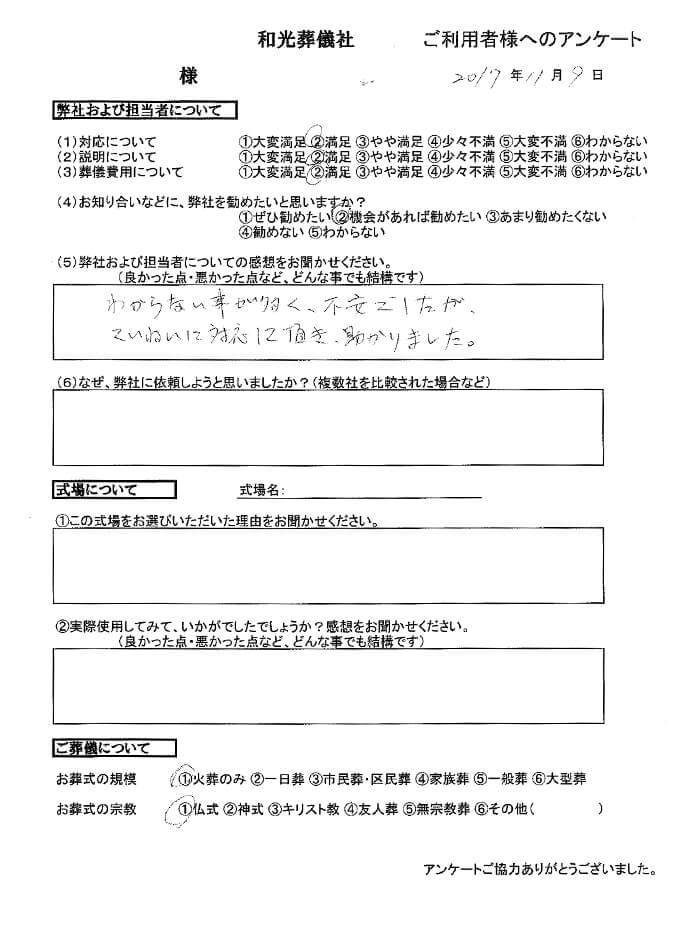 和光葬儀社 ご利用者様へのアンケート
様 2017年11月9日
弊社および担当者について
(1)対応について ①大変満足 ②満足 ③やや満足 ④少々不満 ⑤大変不満 ⑥わからない
(2)説明について ①大変満足 ②満足 ③やや満足 ④少々不満 ⑤大変不満 ⑥わからない
(3)葬儀費用について ①大変満足 ②満足 ③やや満足 ④少々不満 ⑤大変不満 ⑥わからない
(4)お知り合いなどに、弊社を勧めたいと思いますか？
①ぜひ勧めたい ②機会があれば勧めたい ③あまり勧めたくない
④勧めない ⑤わからない
(5)弊社および担当者についての感想をお聞かせください。
(良かった点・悪かった点など、どんな事でも結構です)
わからない事が多く、不安でしたが、
ていねいに対応して頂き、助かりました。
(6)なぜ、弊社に依頼しようと思いましたか？(複数社を比較された場合など)
式場について 式場名:
①この式場をお選びいただいた理由をお聞かせください。
②実際使用してみて、いかがでしたでしょうか？感想をお聞かせください。
(良かった点・悪かった点など、どんな事でも結構です)
ご葬儀について
お葬式の規模 ①火葬のみ ②一日葬 ③市民葬・区民葬 ④家族葬 ⑤一般葬 ⑥大型葬
お葬式の宗教 ①仏式 ②神式 ③キリスト教 ④友人葬 ⑤無宗教葬 ⑥その他( )
アンケートご協力ありがとうございました。